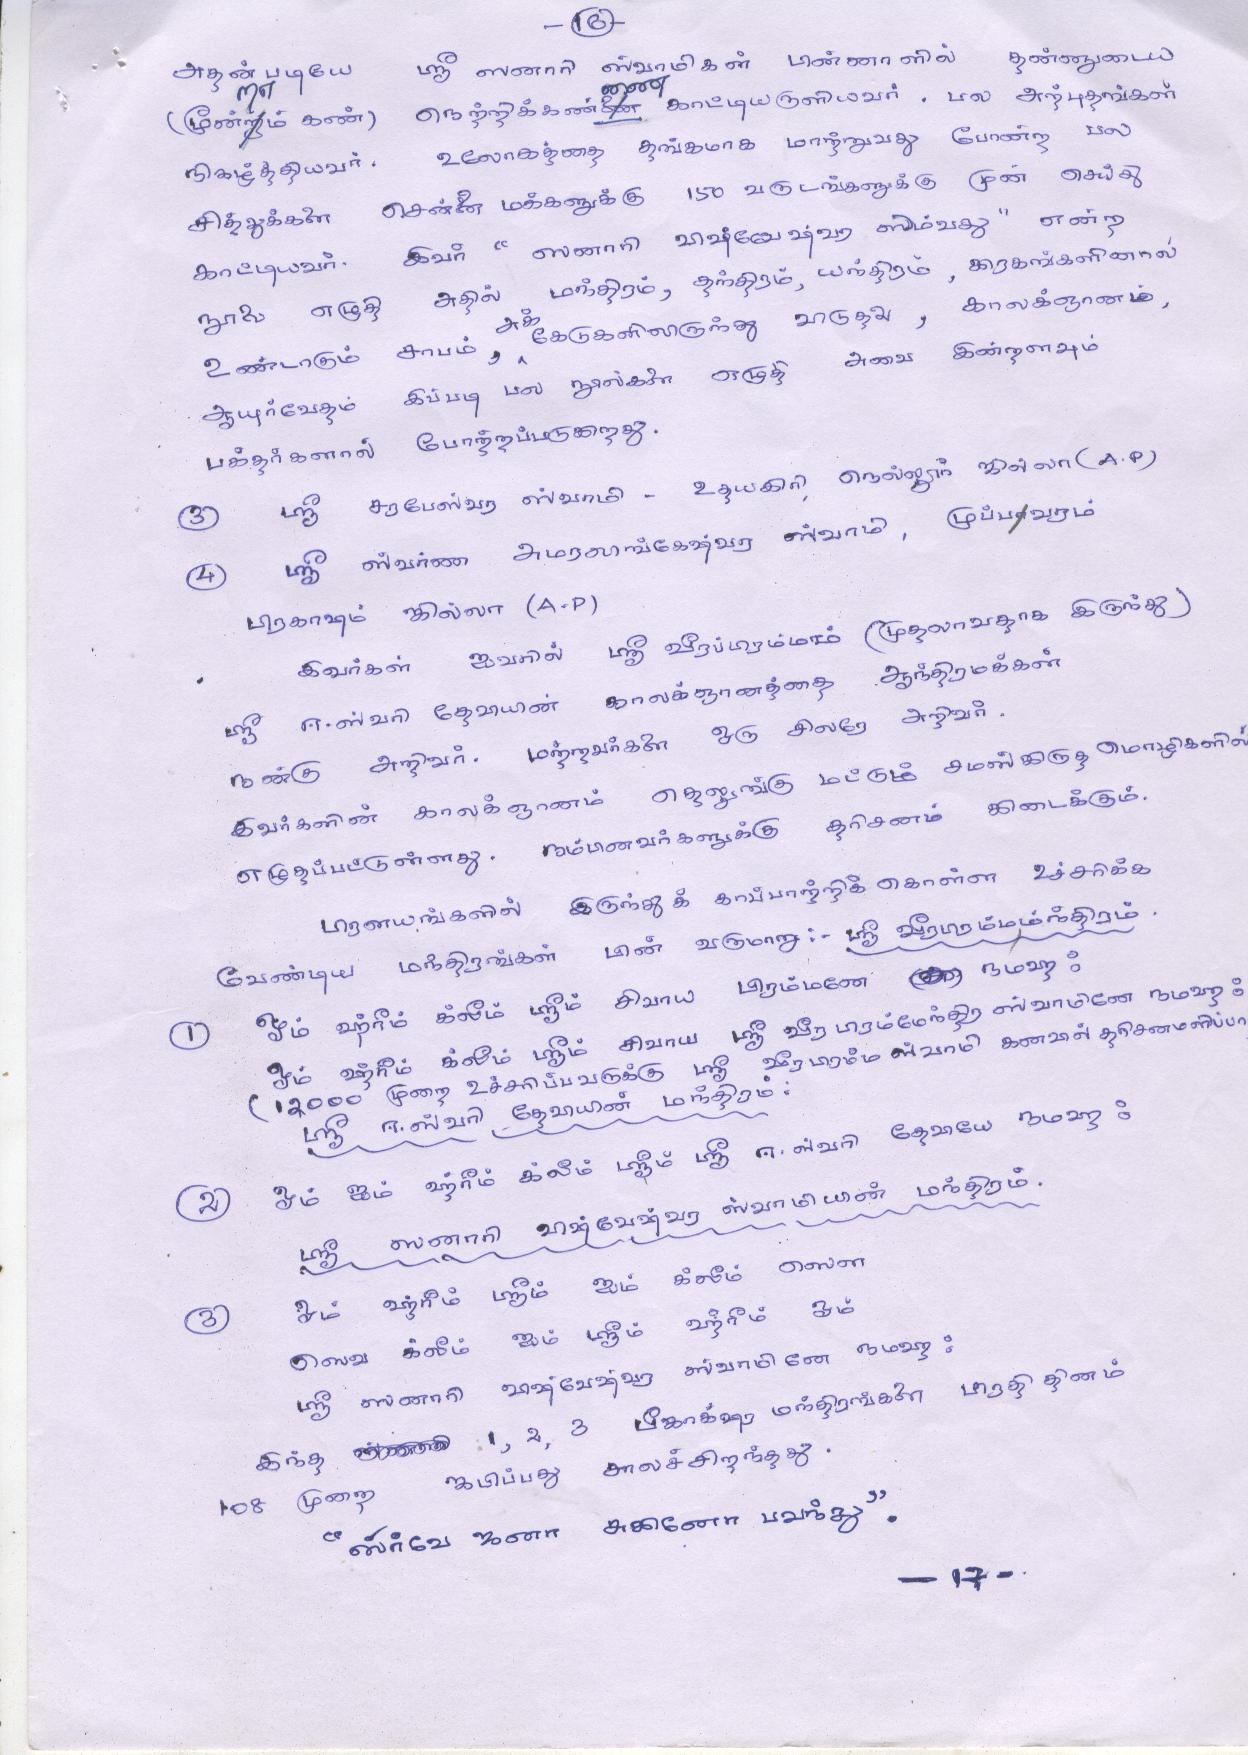 -16-
அதன்படியே ஸ்ரீ ஸனாரி ஸ்வாமிகள் பின்னாளில் தன்னுடைய
(மூன்றாம் கண்) நெற்றிக்கண்ணை காட்டியருளியவர். பல அற்புதங்கள்
நிகழ்த்தியவர். உலோகத்தை தங்கமாக மாற்றுவது போன்ற பல
சித்துக்களை சென்னை மக்களுக்கு 150 வருடங்களுக்கு முன் செய்து
காட்டியவர். இவர் "ஸனாரி விஷ்வேஷ்வர ஸிம்வது" என்ற
நூலை எழுதி அதில் மந்திரம், தந்திரம், யந்திரம், கரகங்களினால்
உண்டாகும் சாபம், அக் கேடுகளிலிருந்து விடுதலை, காலக்ஞானம்,
ஆயுர்வேதம் இப்படி பல நூல்களை எழுதி அவை இன்றளவும்
பக்தர்களால் போற்றப்படுகிறது.
③ ஸ்ரீ சரபேஸ்வர ஸ்வாமி - உதயகிரி, நெல்லூர் ஜில்லா (A.P)
④ ஸ்ரீ ஸ்வர்ண அமரலிங்கேஷ்வர ஸ்வாமி, முப்பவரம்
பிரகாஷம் ஜில்லா (A.P)
இவர்கள் ஐவரில் ஸ்ரீ வீரப்பிரம்மம் (முதலாவதாக இருந்து)
ஸ்ரீ ஈ.ஸ்வரி தேவியின் காலக்ஞானத்தை ஆந்திரமக்கள்
நன்கு அறிவர். மற்றவர்களை ஒரு சிலரே அறிவர்.
இவர்களின் காலக்ஞானம் தெலுங்கு மட்டும் சமஸ்கிருத மொழிகளில்
எழுதப்பட்டுள்ளது. நம்பினவர்களுக்கு தரிசனம் கிடைக்கும்.
பிரளயங்களில் இருந்துக் காப்பாற்றிக் கொள்ள உச்சரிக்க
வேண்டிய மந்திரங்கள் பின் வருமாறு:- ஸ்ரீ வீரபிரம்மம்ந்திரம்.
① ஓம் ஹ்ரீம் க்லீம் ஸ்ரீம் சிவாய பிரம்மணே நமஹ:
ஓம் ஹ்ரீம் க்லீம் ஸ்ரீம் சிவாய ஸ்ரீ வீரபிரம்மேந்திர ஸ்வாமினே நமஹ:
(12000 முறை உச்சரிப்பவருக்கு ஸ்ரீ வீரபிரம்ம ஸ்வாமி கனவில் தரிசனமளிப்பா
ஸ்ரீ ஈ.ஸ்வரி தேவியின் மந்திரம்:
② ஓம் ஐம் ஹ்ரீம் க்லீம் ஸ்ரீம் ஸ்ரீ ஈ.ஸ்வரி தேவியே நமஹ:
ஸ்ரீ ஸனாரி விஷ்வேஷ்வர ஸ்வாமியின் மந்திரம்.
③ ஓம் ஹ்ரீம் ஸ்ரீம் ஐம் க்லீம் ஸௌ
ஸெவ க்லீம் ஐம் ஸ்ரீம் ஹ்ரீம் ஓம்
ஸ்ரீ ஸனாரி விஷ்வேஷ்வர ஸ்வாமினே நமஹ:
இந்த 1, 2, 3 பீஜாக்ஷர மந்திரங்களை பிரதி தினம்
108 முறை ஜபிப்பது சாலச்சிறந்தது.
"ஸர்வே ஜனா சுகினோ பவந்து".
-17-